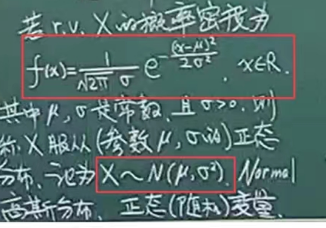 若 r.v. X 的概率密度为
f(x) = 1/(√2π σ) e^{-(x-μ)²/(2σ²)}, x∈R.
其中 μ, σ 是常数, 且 σ>0. 则
称 X 服从(参数 μ, σ的)正态
分布, 记为 X ~ N(μ, σ²). Normal
高斯分布. 正态(随机)变量.